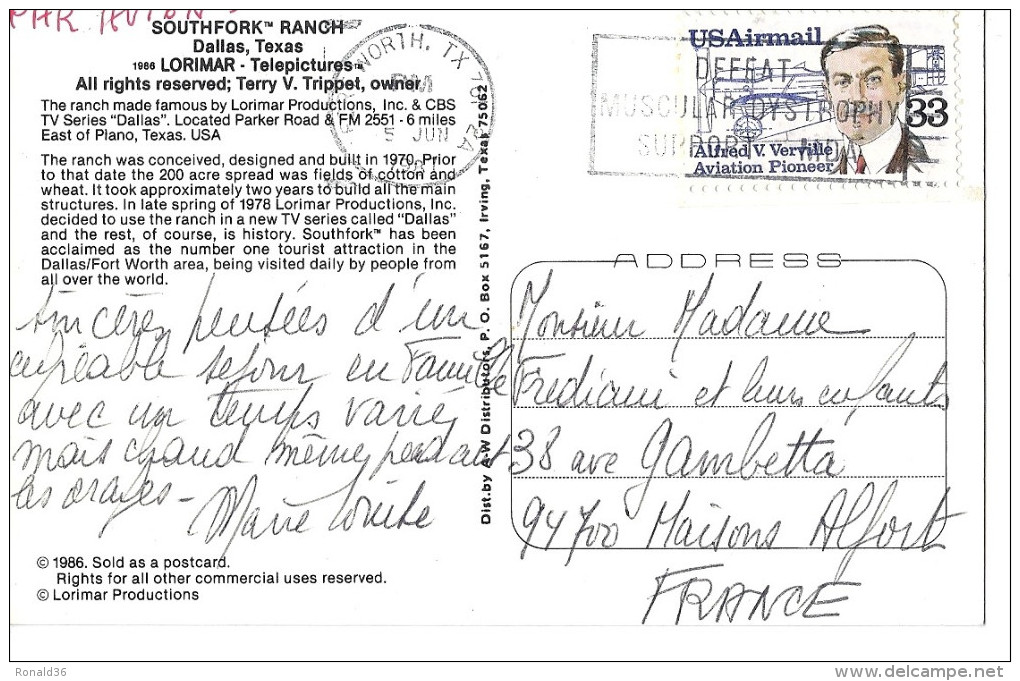 PAR AVION -
SOUTHFORK™ RANCH
Dallas, Texas
1986 LORIMAR - Telepictures™
All rights reserved; Terry V. Trippet, owner
The ranch made famous by Lorimar Productions, Inc. & CBS
TV Series "Dallas". Located Parker Road & FM 2551 - 6 miles
East of Plano, Texas. USA
The ranch was conceived, designed and built in 1970. Prior
to that date the 200 acre spread was fields of cotton and
wheat. It took approximately two years to build all the main
structures. In late spring of 1978 Lorimar Productions, Inc.
decided to use the ranch in a new TV series called "Dallas"
and the rest, of course, is history. Southfork™ has been
acclaimed as the number one tourist attraction in the
Dallas/Fort Worth area, being visited daily by people from
all over the world.
sincères pensées d'un
agréable séjour en Famille
avec un temps varié,
mais chaud même pendant
les orages -
Marie Louise
© 1986. Sold as a postcard.
Rights for all other commercial uses reserved.
© Lorimar Productions
Dist.by A-W Distributors, P. O. Box 5167, Irving, Texas 75062
WORTH, TX 76
PM
5 JUN
USAirmail
33
Alfred V. Verville
Aviation Pioneer
DEFEAT
MUSCULAR DYSTROPHY
SUPPORT MDA
ADDRESS
Monsieur Madame
Frediani et leurs enfants
38 ave Gambetta
94700 Maisons Alfort
FRANCE
Ronald36
www.delcampe.net